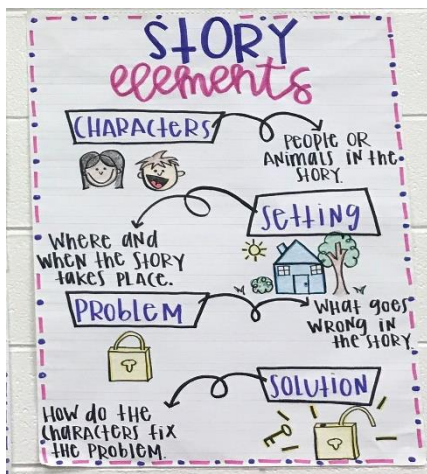 STORY
elements
CHARACTERS
PEOPLE OR
ANIMALS IN the
STORY.
SETTING
WHERE AND
WHEN THE STORY
TAKES PLACE.
PROBLEM
WHAT goes
WRONG IN
the STORY.
SOLUTION
HOW do the
CHARACTERS FIX
THE PROBLEM.